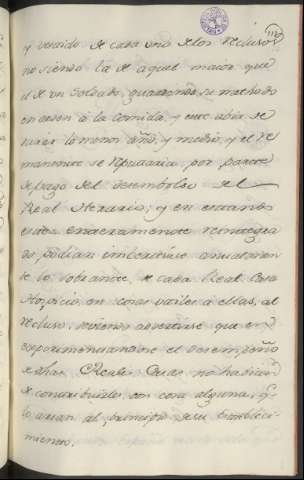 y vestido de cada uno de los reclusos
no siendo la de aquel maior que
el de un Soldado, guardando su methodo
en orden à la comida, y este abia de
durar lo menos año, y medio, y el re
manente se reputaria por parte
de pago del desembolso del
Real Herario; y en estando
este enteramente reintegra
do, podian imbertirse anualmen
te lo sobrante, de cada Real Casa
Hospicio en cosas utiles à ellas, al
recluso, deviendo advertirse que en
experimentandose el desempeño
dhas Reales Casas no habian
de contribuirles con cosa alguna, q.e
lo arian al principio de su estableci-
miento.